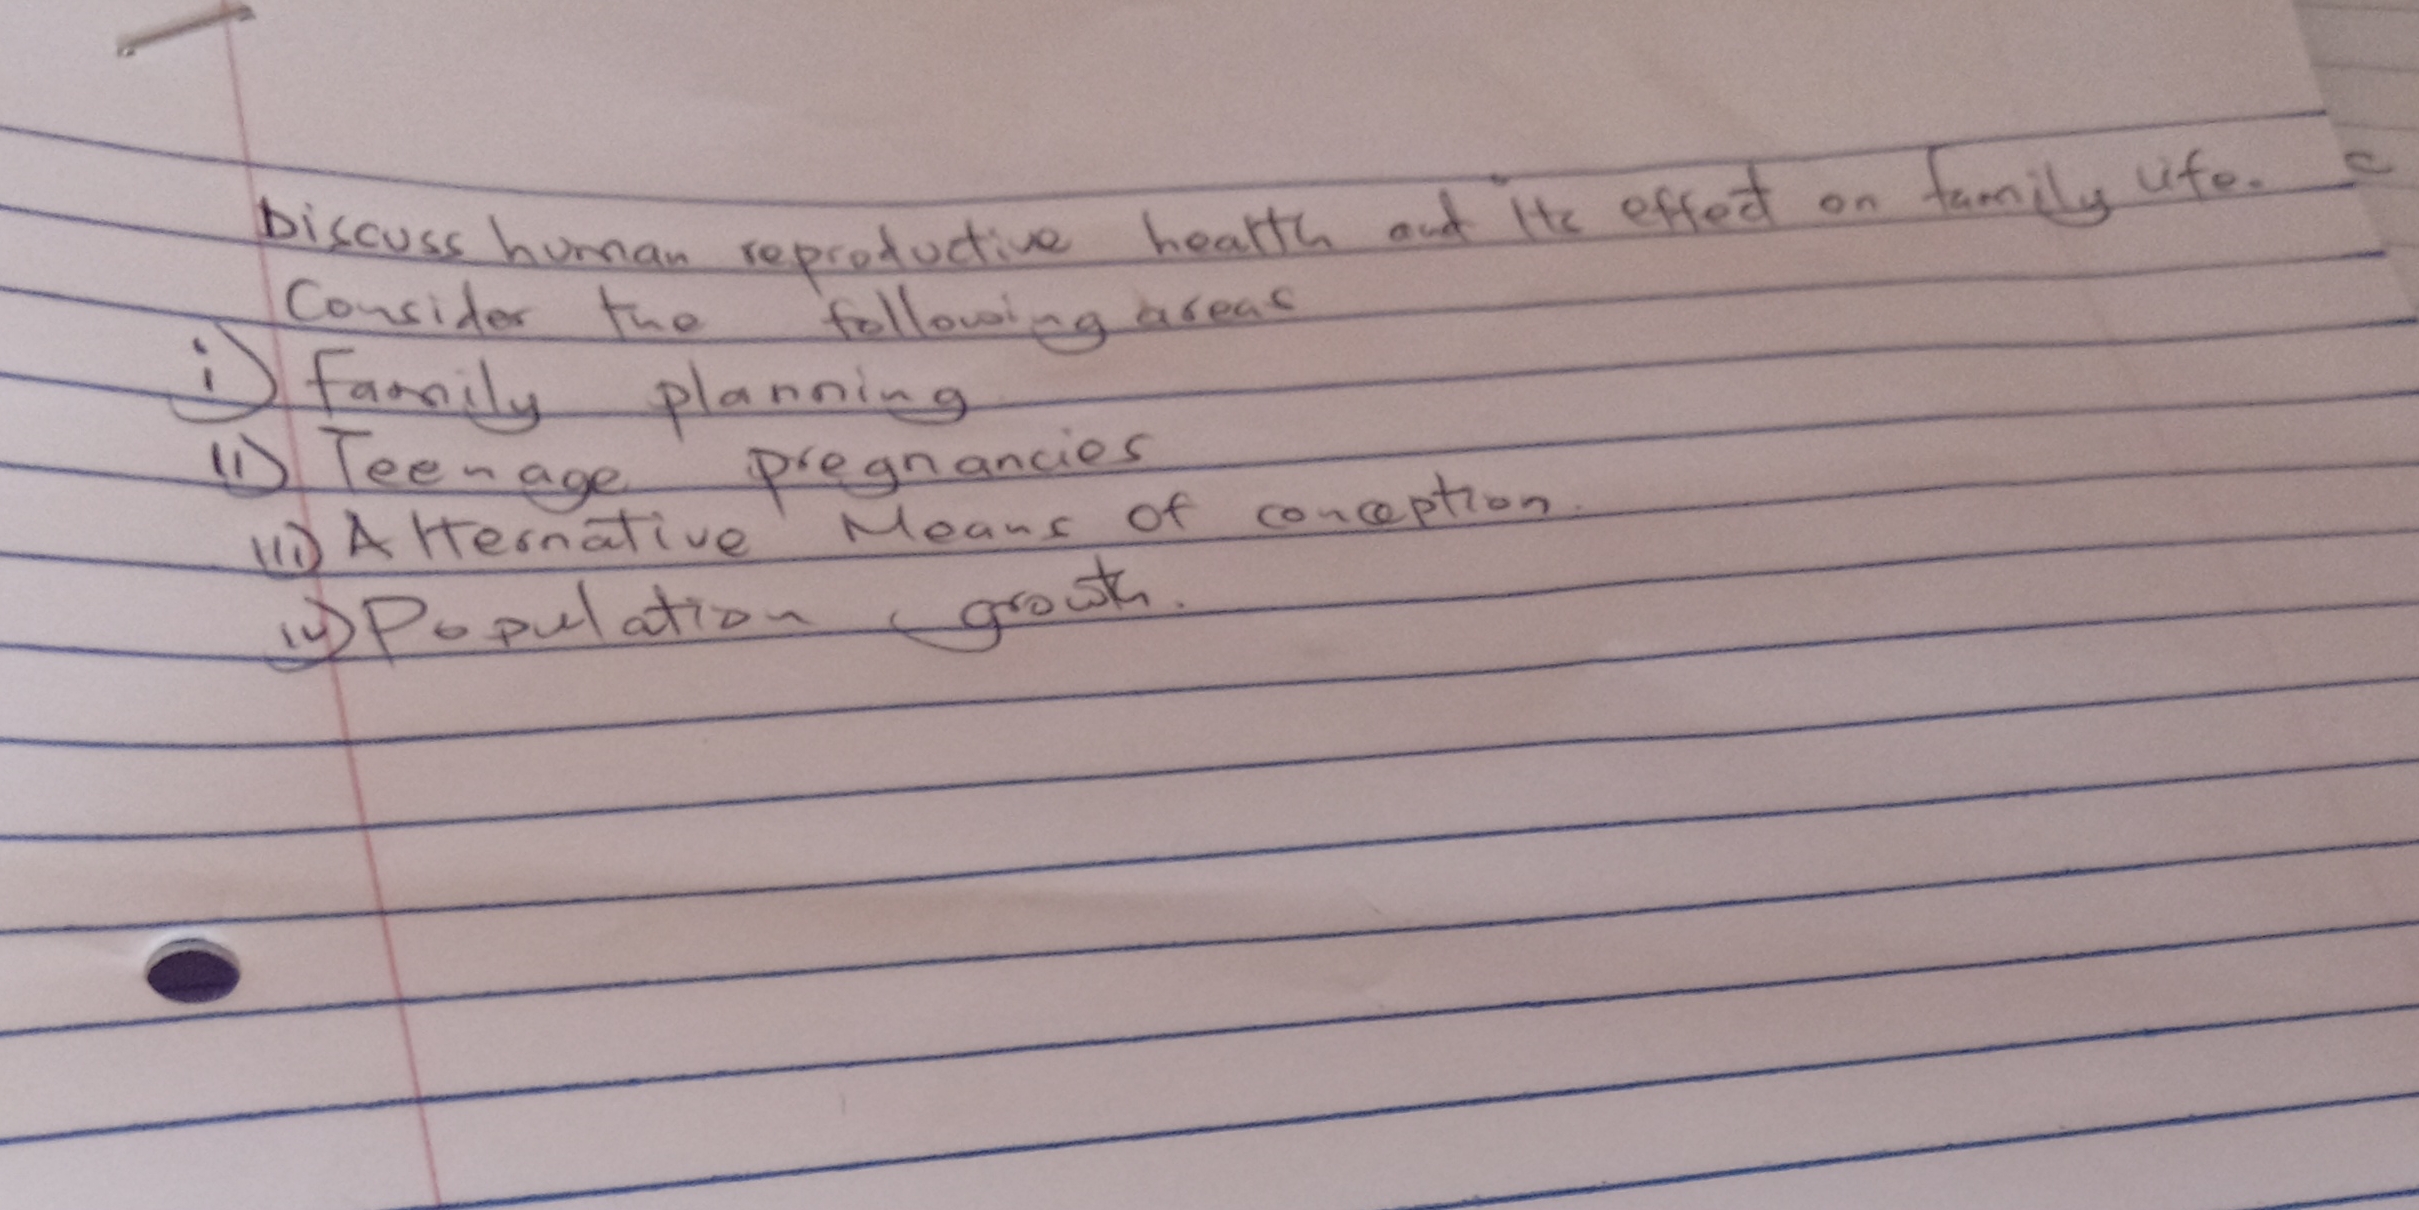 Discuss human reproductive health and its effect on family life.
Consider the following areas
i) Family planning
ii) Teenage pregnancies
iii) Alternative Means of conception.
iv) Population growth.